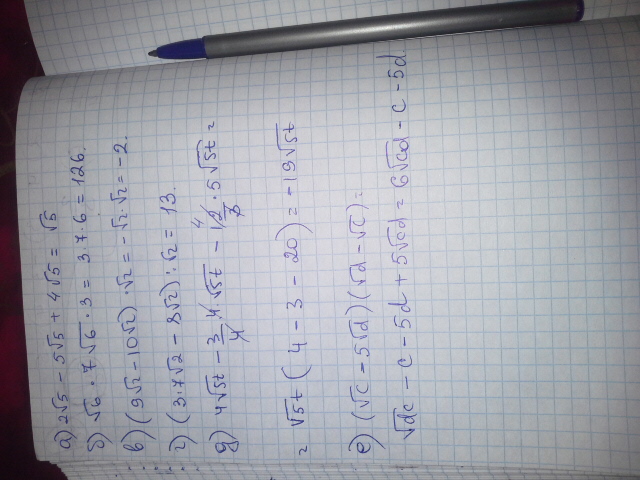 а) 2√5 - 5√5 + 4√5 = √5
б) √6 · 7√6 · 3 = 3·7·6 = 126.
в) (9√2 - 10√2) · √2 = -√2·√2 = -2.
г) (3·7√2 - 8√2) : √2 = 13.
д) 4√5t - 3/4 · 4√5t - 12/3 · 5√5t =
= √5t (4 - 3 - 20) = -19√5t
е) (√c - 5√d)(√d - √c) =
√dc - c - 5d + 5√cd = 6√cd - c - 5d